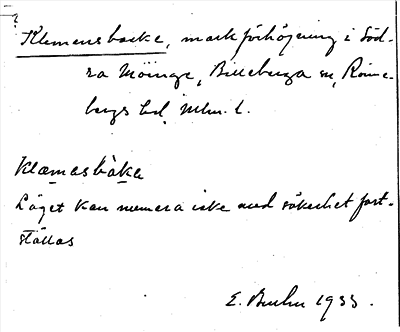 Klemensbacke, markförhöjning i Söd-
ra Möinge, Billeberga sn, Rönne-
bergs hd, Mlm. l.
Klæmasbàka
Läget kan numera icke med säkerhet fast-
ställas
E. 1933.